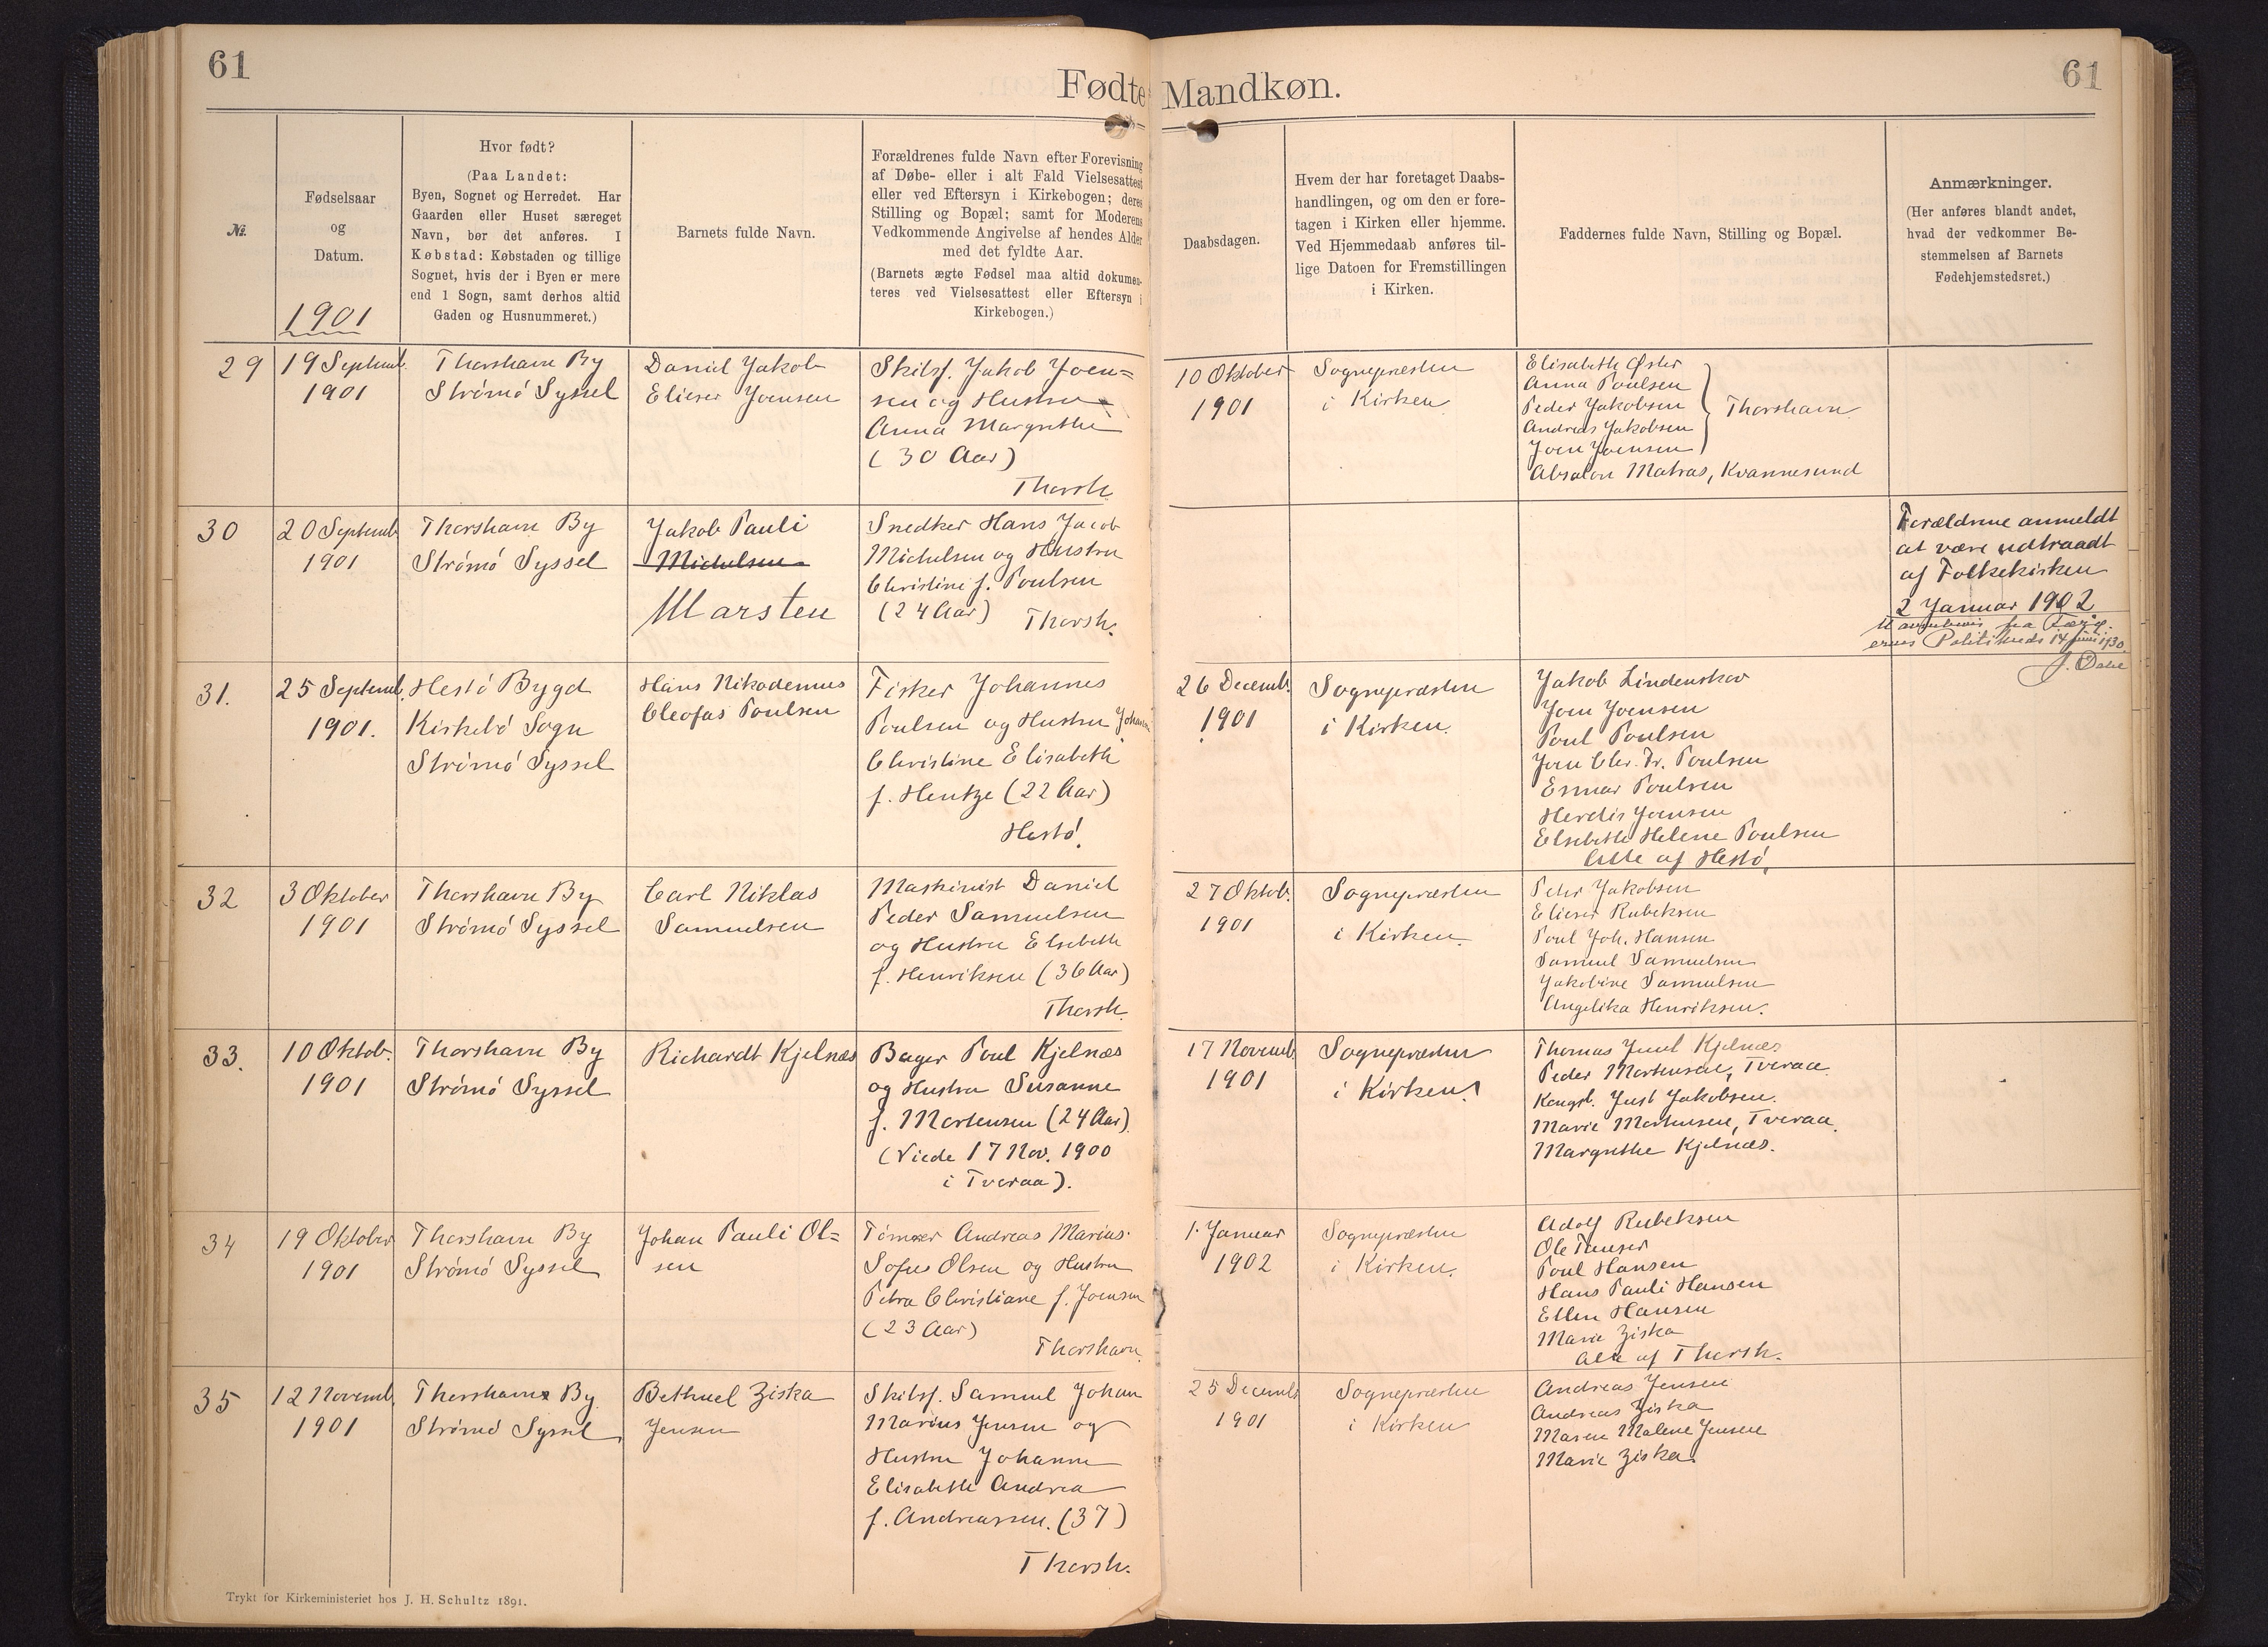 61
61
Fødte Mandkøn.
№.
Fødselsaar
og
Datum.
1901
Hvor født?
(Paa Landet:
Byen, Sognet og Herredet. Har
Gaarden eller Huset særeget
Navn, bør det anføres. I
Købstad: Købstaden og tillige
Sognet, hvis der i Byen er mere
end 1 Sogn, samt derhos altid
Gaden og Husnummeret.)
Barnets fulde Navn.
Forældrenes fulde Navn efter Forevisning
af Døbe- eller i alt Fald Vielsesattest
eller ved Eftersyn i Kirkebogen; deres
Stilling og Bopæl; samt for Moderens
Vedkommende Angivelse af hendes Alder
med det fyldte Aar.
(Barnets ægte Fødsel maa altid dokumen-
teres ved Vielsesattest eller Eftersyn i
Kirkebogen.)
Daabsdagen.
Hvem der har foretaget Daabs-
handlingen, og om den er fore-
tagen i Kirken eller hjemme.
Ved Hjemmedaab anføres til-
lige Datoen for Fremstillingen
i Kirken.
Faddernes fulde Navn, Stilling og Bopæl.
Anmærkninger.
(Her anføres blandt andet,
hvad der vedkommer Be-
stemmelsen af Barnets
Fødehjemstedsret.)
29
19 Septemb.
1901
Thorshavn By
Strømø Syssel
Daniel Jakob
Elieser Joensen
Skibsf. Jakob Joen=
sen og Hustru
Anna Margrethe
(30 Aar)
Thorsh.
10 Oktober
1901
Sognepræsten
i Kirken
Elisabeth Øster
Anna Poulsen
Peder Jakobsen
Andreas Jakobsen
Joen Joensen
Thorshavn
Absalon Matras, Kvannesund
30
20 Septemb.
1901
Thorshavn By
Strømø Syssel
Jakob Pauli
Michelsen
Marsten
Snedker Hans Jacob
Michelsen og Hustru
Christine f. Poulsen
(24 Aar)
Thorsh.
Forældrene anmeldt
at være udtraadt
af Folkekirken
2 Januar 1902
Navnebevis fra Færø-
ernes Politikreds 14 juni 1930.
J. Dahl
31.
25 Septemb.
1901.
Hestø Bygd
Kirkebø Sogn
Strømø Syssel
Hans Nikodemus
Cleofas Poulsen
Fisker Johannes
Poulsen og Hustru Johanne
Christine Elisabeth
f. Hentze (22 Aar)
Hestø.
26 Decemb.
1901
Sognepræsten
i Kirken.
Jakob Lindenskov
Joen Joensen
Poul Poulsen
Joen Chr. Dr. Poulsen
Esmar Poulsen
Herdis Joensen
Elsebeth Helene Poulsen
Alle af Hestø.
32
3 Oktober
1901
Thorshavn By
Strømø Syssel
Carl Niklas
Samuelsen
Maskinist Daniel
Peder Samuelsen
og Hustru Elsebeth
f. Henriksen (36 Aar)
Thorsh.
27 Oktob.
1901
Sognepræsten
i Kirken.
Peter Jakobsen
Elieser Rubeksen
Poul Joh. Hansen
Samuel Samuelsen
Jakobine Samuelsen
Angelika Henriksen.
33.
10 Oktob.
1901
Thorshavn By
Strømø Syssel
Richardt Kjelnæs
Bager Poul Kjelnæs
og Hustru Susanne
f. Mortensen (24 Aar)
(Viede 17 Nov. 1900
i Tveraa).
17 Novemb.
1901
Sognepræsten
i Kirken.
Thomas Juul Kjelnæs
Peder Mortensen, Tveraa.
Kongsb. Just Jakobsen.
Marie Mortensen, Tveraa.
Margrethe Kjelnæs.
34
19 Oktober
1901
Thorshavn By
Strømø Syssel
Johan Pauli Ol=
sen
Tømrer Andreas Marius
Sofus Olsen og Hustru
Petra Christiane f. Joensen
(23 Aar)
Thorshavn.
1. Januar
1902
Sognepræsten
i Kirken.
Adolf Rubeksen
Ole Tausen
Poul Hansen
Hans Pauli Hansen
Ellen Hansen
Marie Ziska
Alle af Thorsh.
35
12 Novemb.
1901
Thorshavn By
Strømø Syssel
Bethuel Ziska
Jensen
Skibsf. Samuel Johan
Marius Jensen og
Hustru Johanne
Elisabeth Andrea
f. Andreassen. (37)
Thorsh.
25 Decemb.
1901
Sognepræsten
i Kirken
Andreas Jensen
Andreas Ziska
Maren Malene Jensen
Marie Ziska.
Trykt for Kirkeministeriet hos J. H. Schultz 1891.